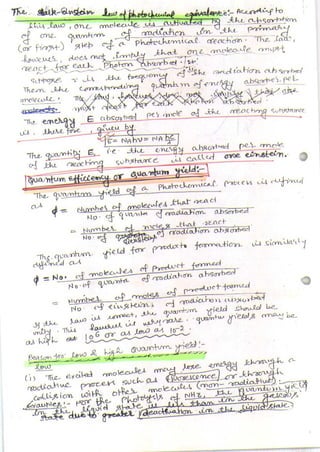 The Stark-Einstein law of photochemical equivalence:- According to
this law, one molecule is activated by the absorption
of one quantum of radiation in the primary
(or first) step of a Photochemical reaction. The law,
however, does not imply that one molecule must
react for each Photon absorbed.
suppose ν is the frequency of the radiation absorbed
Then the corresponding quantum of energy absorbed per
molecule.
The energy E absorbed per mole of the reacting substance
is, therefore given by
E = NAhν = NAhc
The quantity E, ie the energy absorbed per mole
of the reacting substance is called one einstein.
Quantum efficiency or Quantum yield:-
The quantum yield of a Photochemical process is defined
as ϕ = Number of molecules that react
No. of quanta of radiation absorbed
= Number of moles that react
No. of einsteins of radiation absorbed
The quantum yield for product formation is similarly
defined as
ϕ = No. of molecules of Product formed
No. of quanta of radiation absorbed
= Number of moles of product formed
No. of einsteins of radiation absorbed
If the law is correct, the quantum yield should be
unity. This however is very rare. quantum yields may be
as high as 10^6 or as low as 10^-2.
Reason for low & high quantum yield:-
low
(i) The excited molecules may lose energy through a
radiative process such as (fluorescence) or through
collision with other molecules (non-radiative).
Example:- For the Photolysis of NH3, the quantum yield
in the liquid state is less than in the gaseous
state due to greater deactivation in the liquid state.